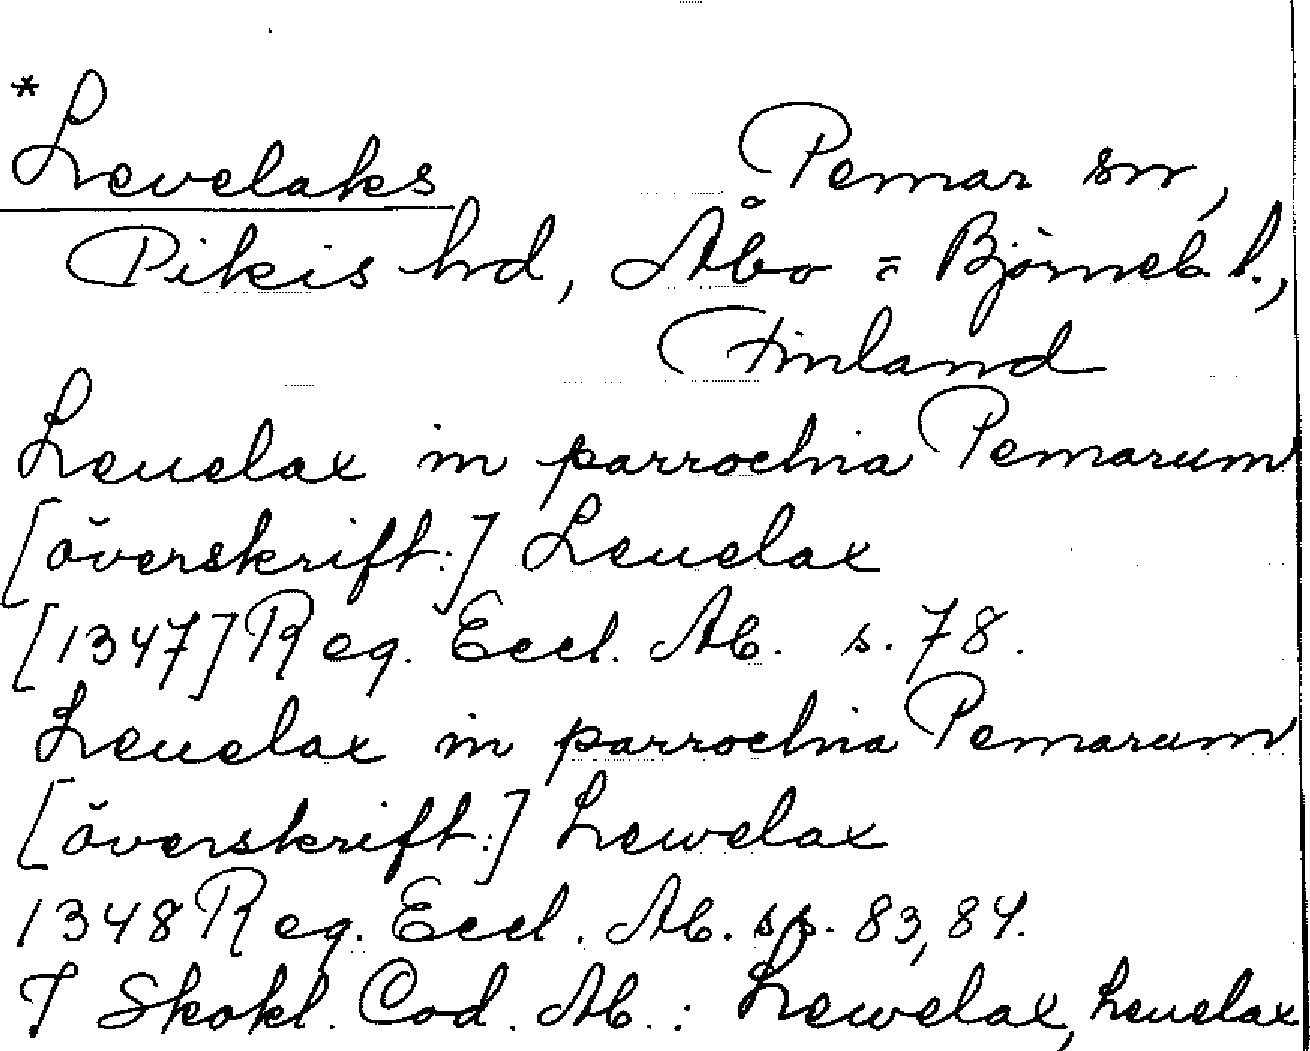 *Levelaks Pemar sn,
Pikis hd, Åbo = Björneb. l.,
Finland
Leuelax in parrochia Pemarum
[överskrift:] Leuelax
[1347] Reg. Eccl. Ab. s. 78.
Leuelax in parrochia Pemarum
[överskrift:] Lewelax
1348 Reg. Eccl. Ab. ss. 83, 84.
I Skokl. Cod. Ab.: Lewelax, Leuelax